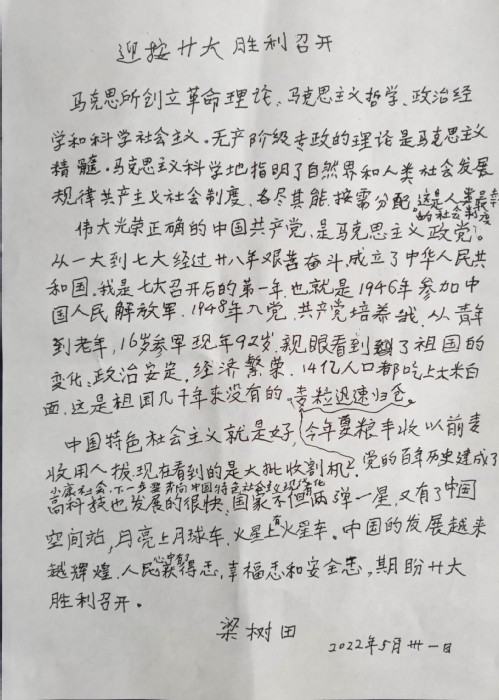 迎接廿大胜利召开
马克思所创立革命理论、马克思主义哲学、政治经
学和科学社会主义。无产阶级专政的理论是马克思主义
精髓。马克思主义科学地指明了自然界和人类社会发展
规律共产主义社会制度、各尽其能、按需分配。这是人类最幸
的社会制度
伟大光荣正确的中国共产党,是马克思主义政党。
从一大到七大经过廿八年艰苦奋斗,成立了中华人民共
和国。我是七大召开后的第一年,也就是1946年参加中
国人民解放军。1948年入党,共产党培养我,从青年
到老年,16岁参军现年92岁,亲眼看到了祖国的
变化、政治安定,经济繁荣。14亿人口都吃上大米白
面,这是祖国几千年来没有的。麦粒迅速归仓。
中国特色社会主义就是好,今年夏粮丰收以前麦
收用人拔,现在看到的是大批收割机。党的百年历史建成了
小康社会、下一步要向中国特色社会主义现代化
高科技也发展的很快,国家不但两弹一星,又有了中国
空间站,月亮上月球车,火星上有火星车。中国的发展越来
越辉煌,人民心中都获得志,幸福志和安全志,期盼廿大
胜利召开。
梁树田
2022年5月卅一日